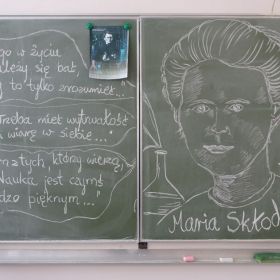 go w życiu
ależy się bać,
y to tylko zrozumieć..."
Trzeba mieć wytrwałość
wiarę w siebie..."
m z tych, którzy wierzą,
Nauka jest czymś
dzo pięknym..."
Maria Skłod